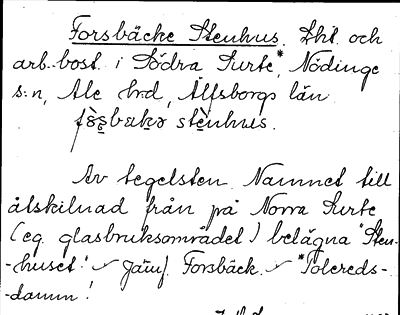 Forsbäcke Stenhus. Lht. och
arb.bost. i Södra Surte*, Nödinge
s:n, Ale hrd, Älfsborgs län
stènhus.
Av tegelsten. Namnet till
åtskilnad från på Norra Surte
(eg. glasbruksområdet) belägna "Sten-
-huset". Jämf. Forsbäck. *Tolereds-
-damm!